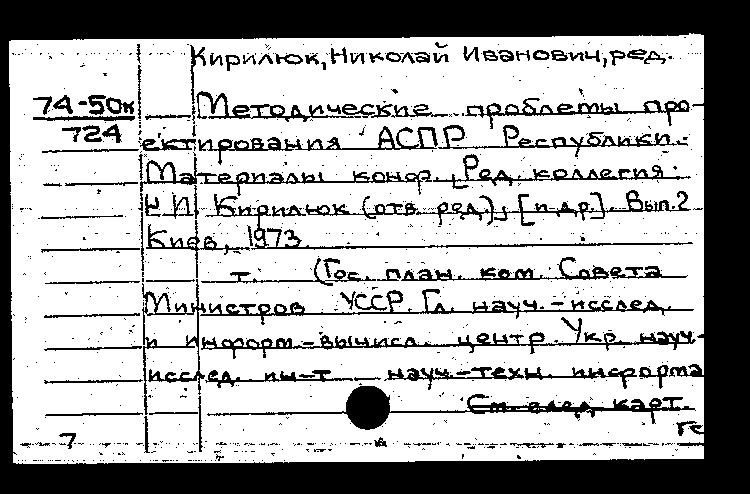 Кирилюк, Николай Иванович, ред.
74-50к
724
Методические проблемы про-
ектирования АСПР Республики.-
Материалы конф. [Ред. коллегия:
Н.И. Кирилюк (отв. ред.)], [и др.]. Вып.2
Киев, 1973.
т. (Гос. план. ком. Совета
Министров УССР. Гл. науч.-исслед.
и информ.-вычисл. центр. Укр. науч-
исслед. ин-т науч.-техн. информа
См. след. карт.
7